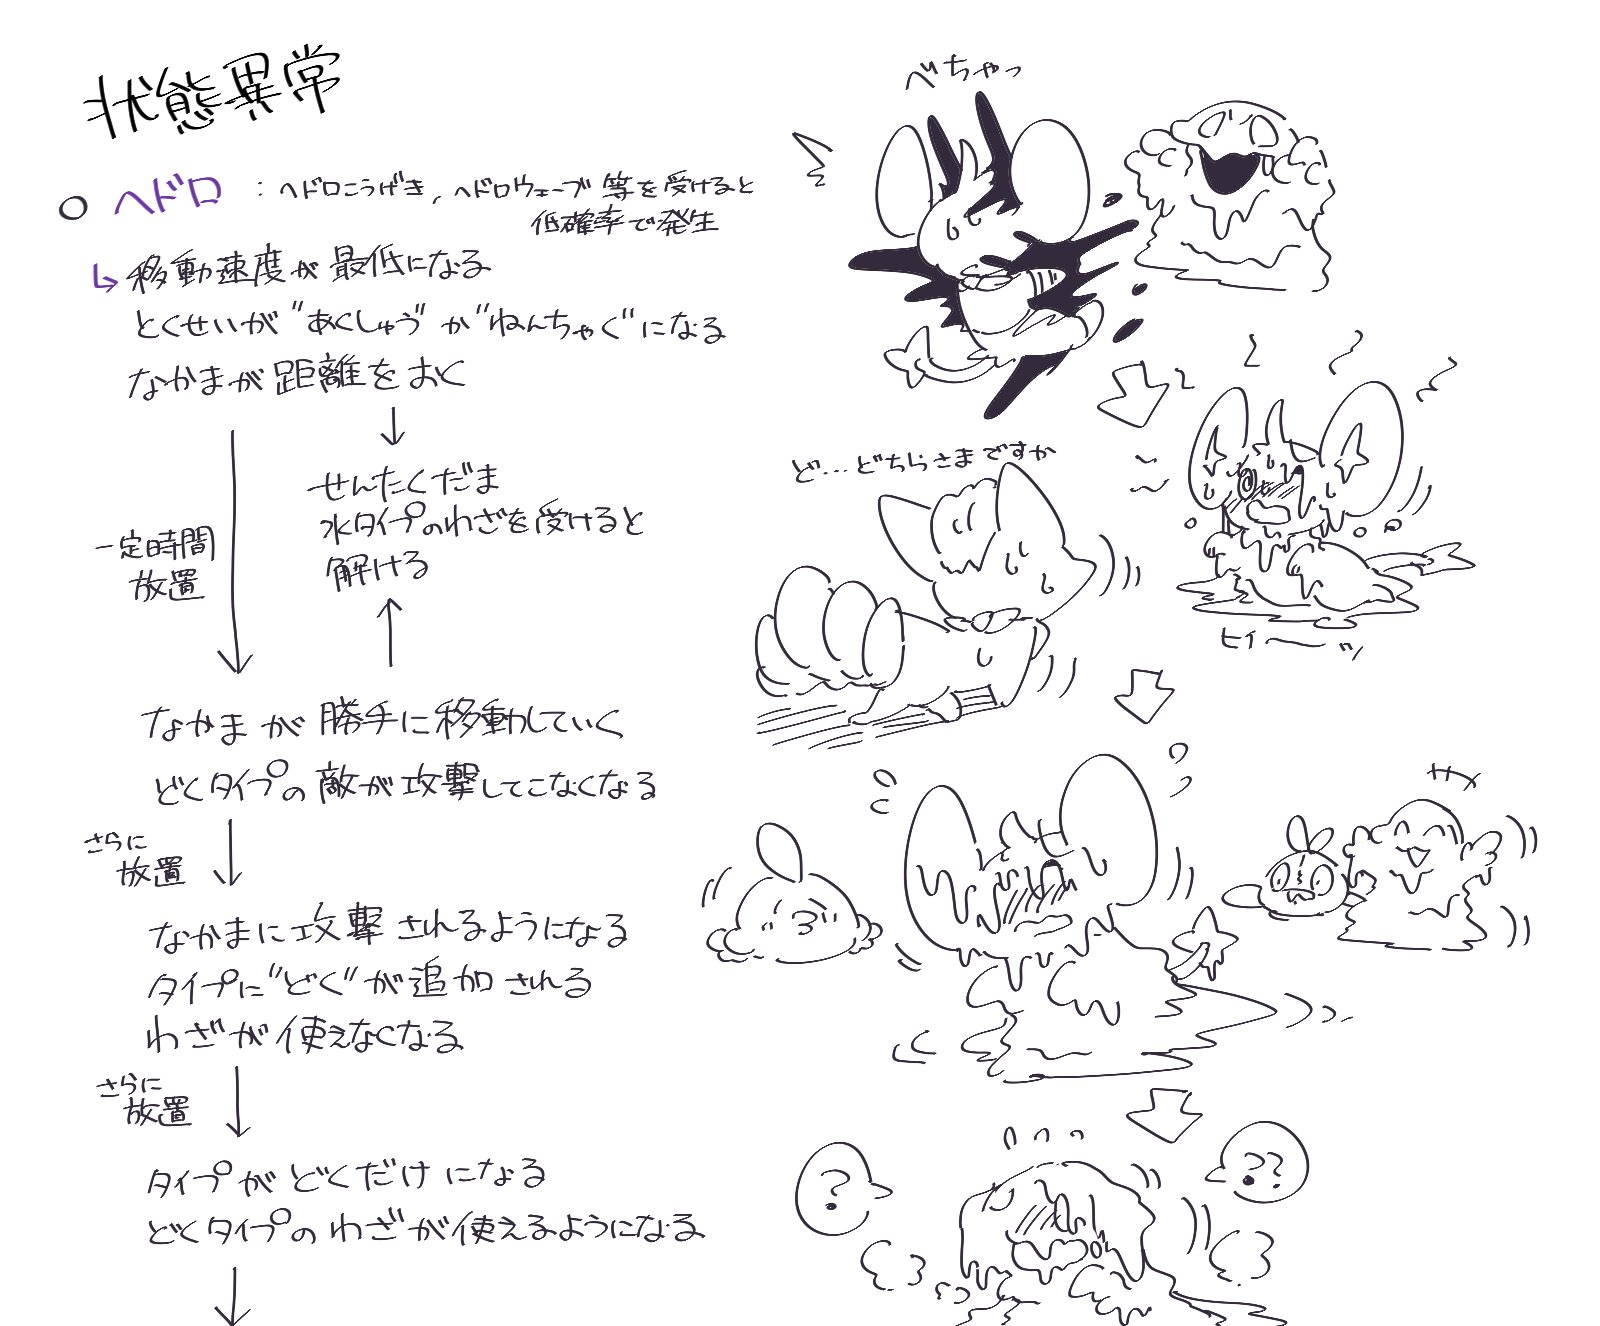 状態異常
○ ヘドロ : ヘドロこうげき、ヘドロウェーブ 等を受けると
低確率で発生
↳ 移動速度が最低になる
とくせいが"あくしゅう"か"ねんちゃく"になる
なかまが距離をおく
せんたくだま
水タイプのわざを受けると
解ける
一定時間
放置
なかまが勝手に移動していく
どくタイプの敵が攻撃してこなくなる
さらに
放置
なかまに攻撃されるようになる
タイプに"どく"が追加される
わざが使えなくなる
さらに
放置
タイプがどくだけになる
どくタイプのわざが使えるようになる
べちゃっ
ど…どちらさまですか
ヒィーーッ
?
??